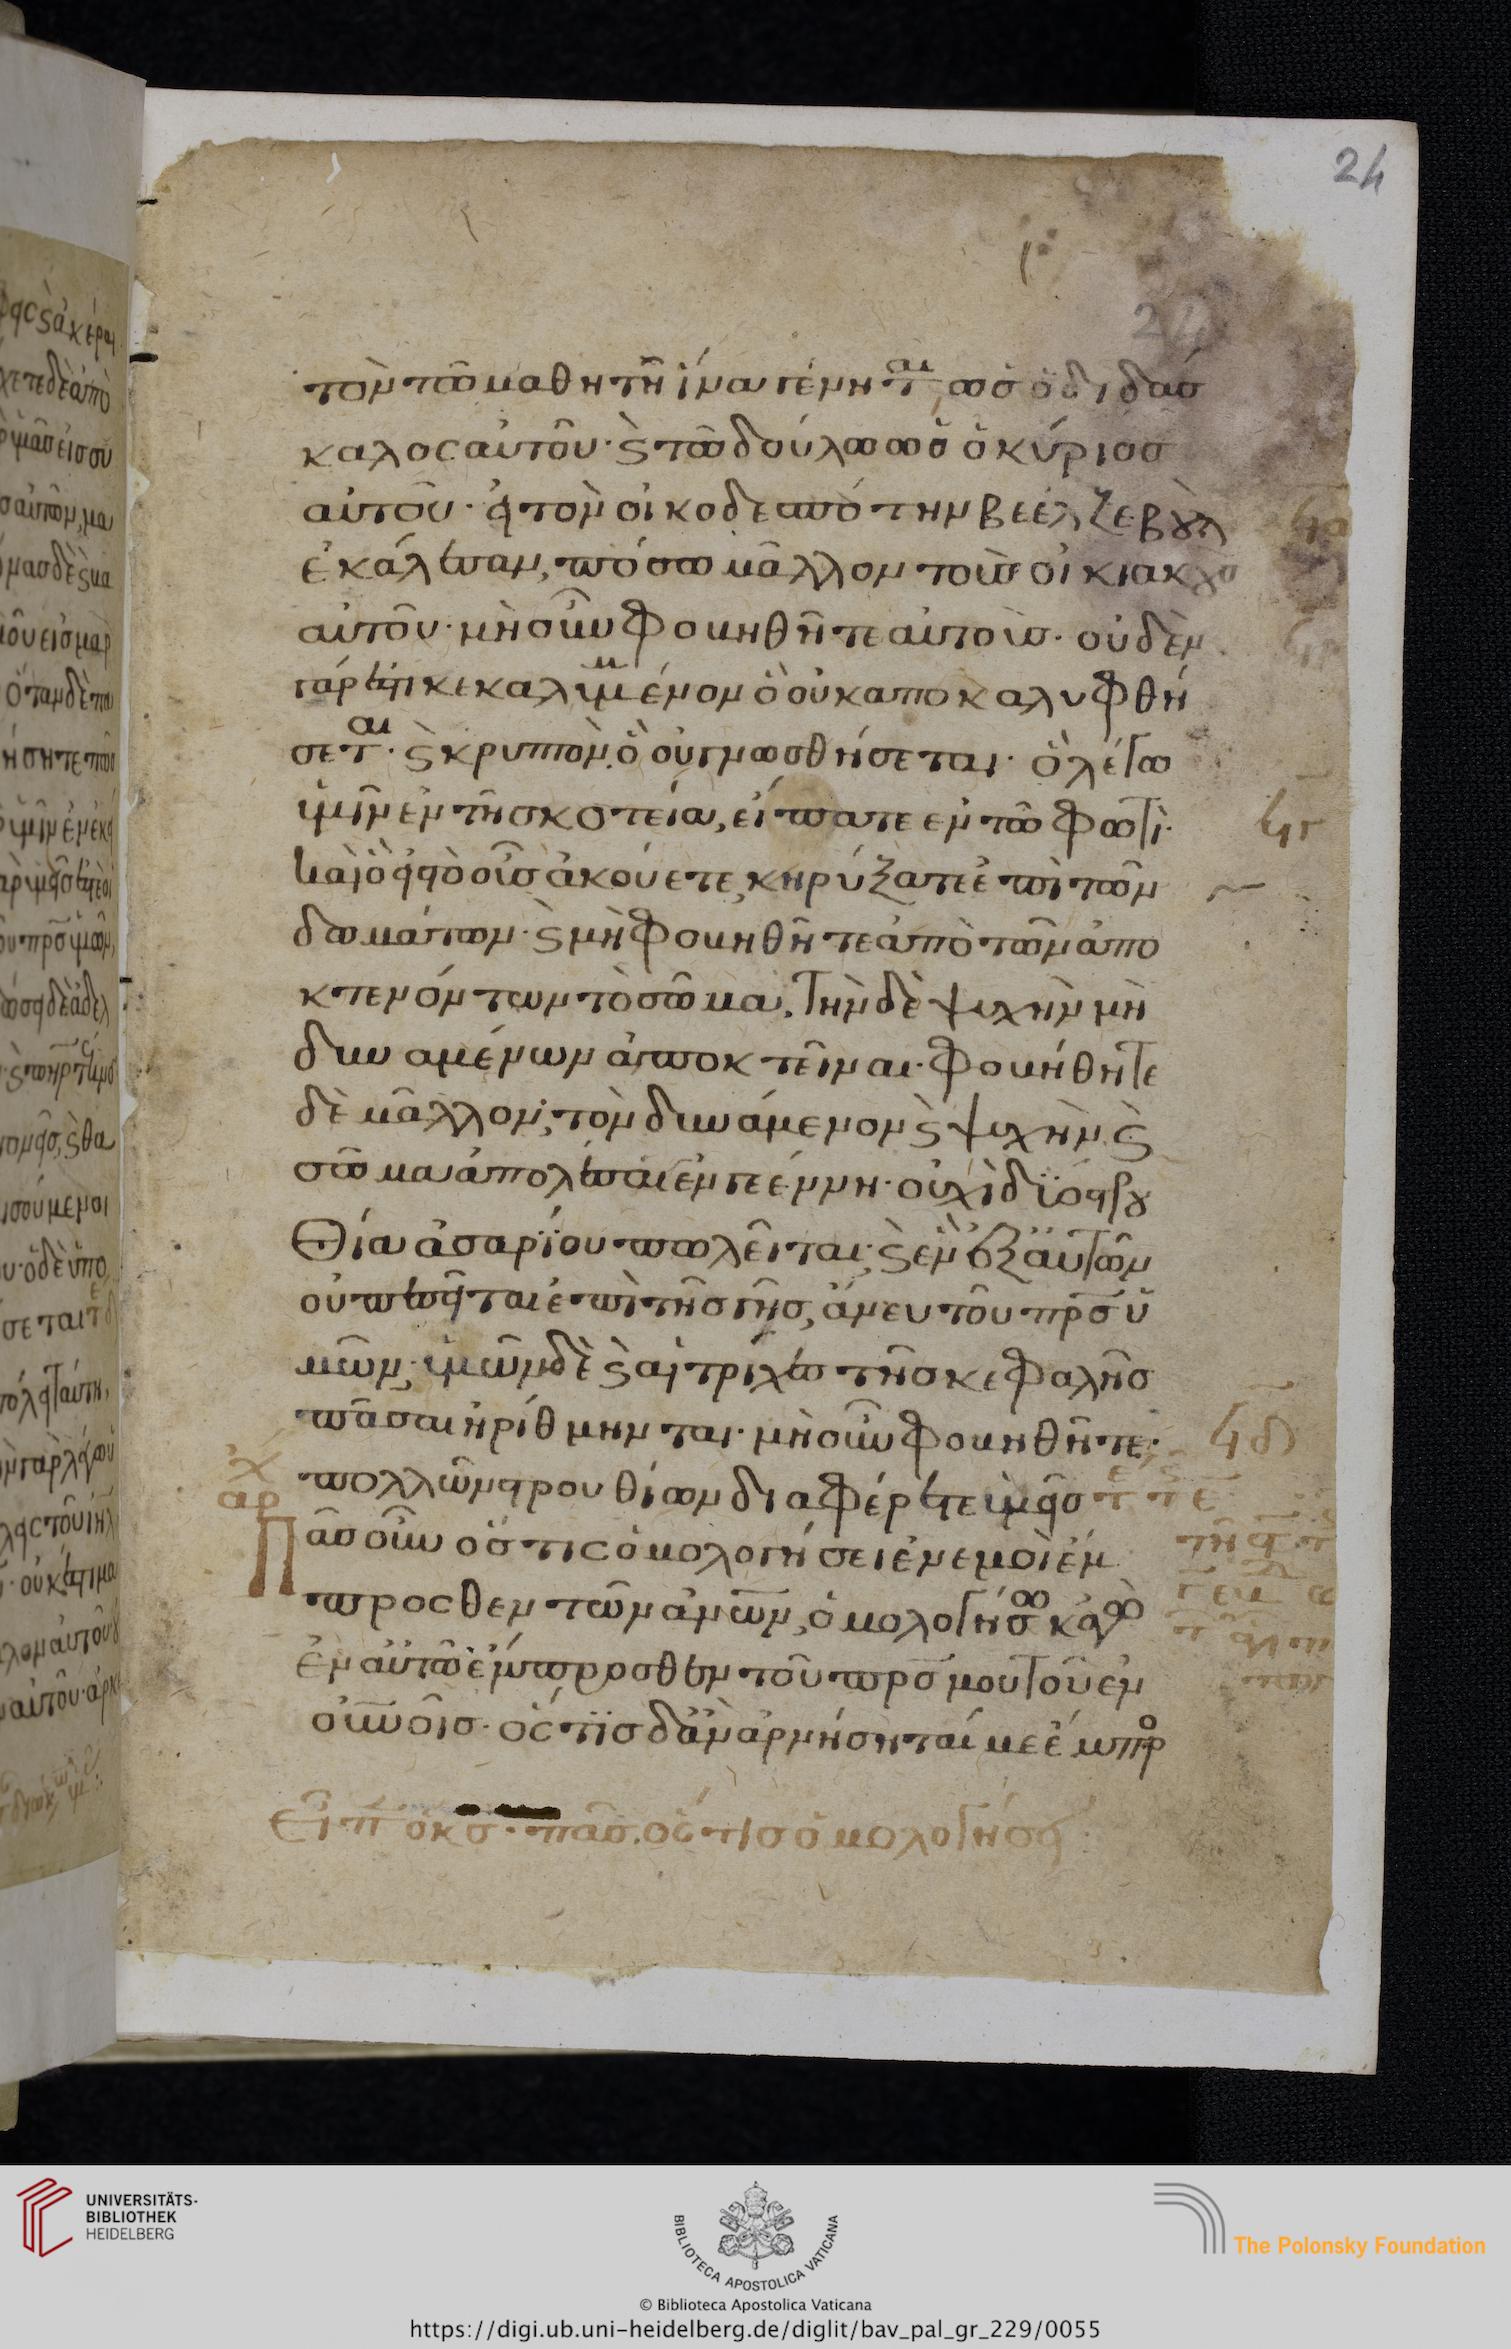 24
24
τὸν τῶ μαθητῆ ἵνα γένηται ὡς ὁ διδάσ
καλος αὐτοῦ· ϗ τῶ δούλω ὡς ὁ κύριος
αὐτοῦ· εἰ τὸν οἰκοδεσπότην βεελζεβοὺλ
ἐκάλεσαν, πόσω μᾶλλον τοὺς οἰκιακοὺς
αὐτοῦ· μὴ οὖν φοβηθῆτε αὐτούς· οὐδὲν
γάρ ἐστι κεκαλυμμένον ὃ οὐκ αποκαλυφθή
σεται· ϗ κρυπτὸν, ὃ οὐ γνωσθήσεται· ὃ λέγω
ὑμῖν ἐν τῆ σκοτεία, εἴπατε εν τῶ φωτί·
ϟγ
καὶ ὃ εἰς τὸ οὖς ἀκούετε, κηρύξατε ἐπὶ τῶν
δωμάτων· ϗ μὴ φοβηθῆτε ἀπὸ τῶν ἀπο
κτενόντων τὸ σῶμα, τὴν δὲ ψυχὴν μὴ
δυναμένων ἀποκτεῖναι· φοβήθητε
δὲ μᾶλλον, τὸν δυνάμενον ϗ ψυχὴν ϗ
σῶμα ἀπολέσαι ἐν γεέννη· οὐχὶ δύο στρου
θία ἀσαρίου πωλεῖται; ϗ ἓν ἐξ αὐτῶν
οὐ πεσεῖται ἐπὶ τῆς γῆς, ἄνευ τοῦ πρς ὑ
μῶν· ὑμῶν δὲ ϗ αἱ τρίχες τῆς κεφαλῆς
πᾶσαι ἠρίθμηνται· μὴ οὖν φοβηθῆτε·
ϟδ
πολλῶν στρουθίων διαφέρετε ὑμεῖς
αρχ
Πᾶς οὖν ὅστις ὁμολογήσει ἐν εμοὶ ἔμ
προσθεν τῶν ἀνων, ὁμολογήσω κἀγὼ
ἐν αὐτῶ ἔμπροσθεν τοῦ πρς μου τοῦ ἐν
οὐνοῖς· ὅστις δ᾽ ἂν ἀρνήσηταί με ἔμπρο
Εἶπ ὁ κς· πᾶς ὅστις ὁμολογήσει
UNIVERSITÄTS-
BIBLIOTHEK
HEIDELBERG
BIBLIOTECA APOSTOLICA VATICANA
The Polonsky Foundation
© Biblioteca Apostolica Vaticana
https://digi.ub.uni-heidelberg.de/diglit/bav_pal_gr_229/0055